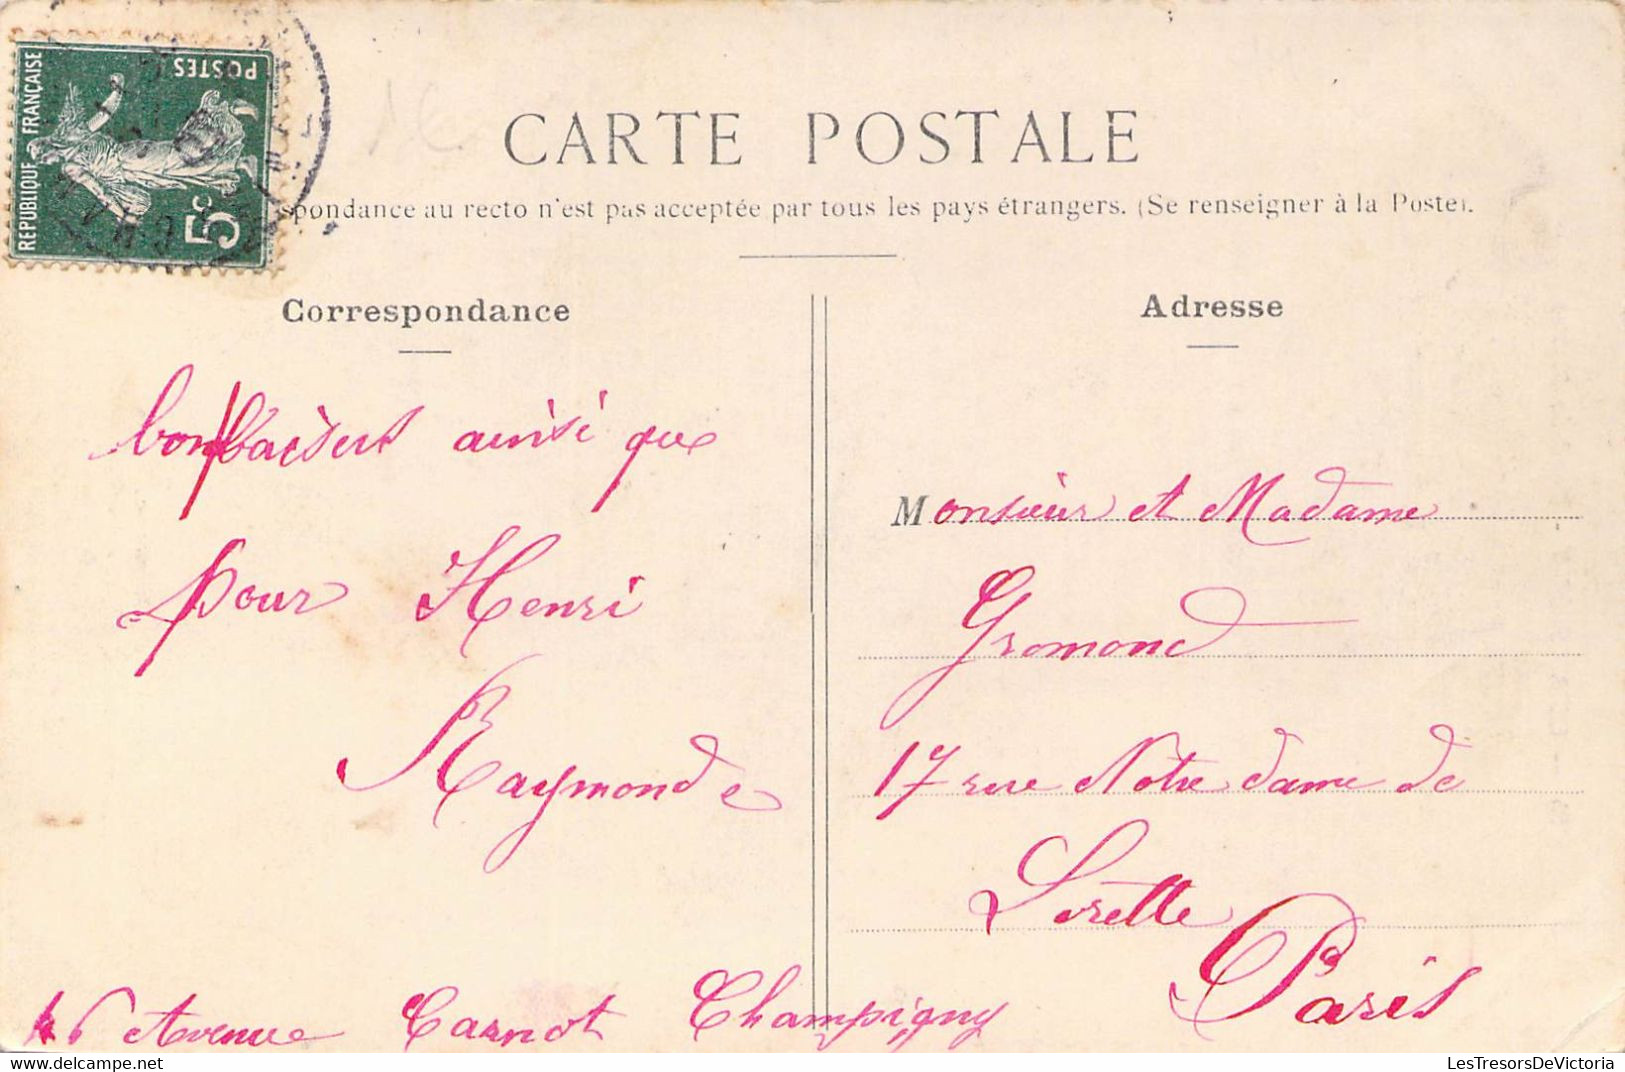 RÉPUBLIQUE FRANÇAISE
POSTES
5c
CARTE POSTALE
pondance au recto n'est pas acceptée par tous les pays étrangers. (Se renseigner à la Poste).
Correspondance
bons baisers ainsi que
pour Henri
Raymonde
Avenue Carnot Champigny
Adresse
Monsieur et Madame
Gromond
17 rue Notre dame de
Lorette
Paris
LesTresorsDeVictoria